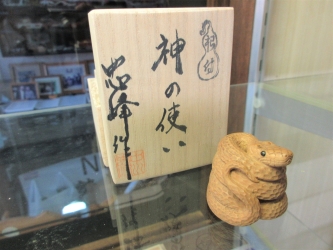 根付
神の使い
忠峰作